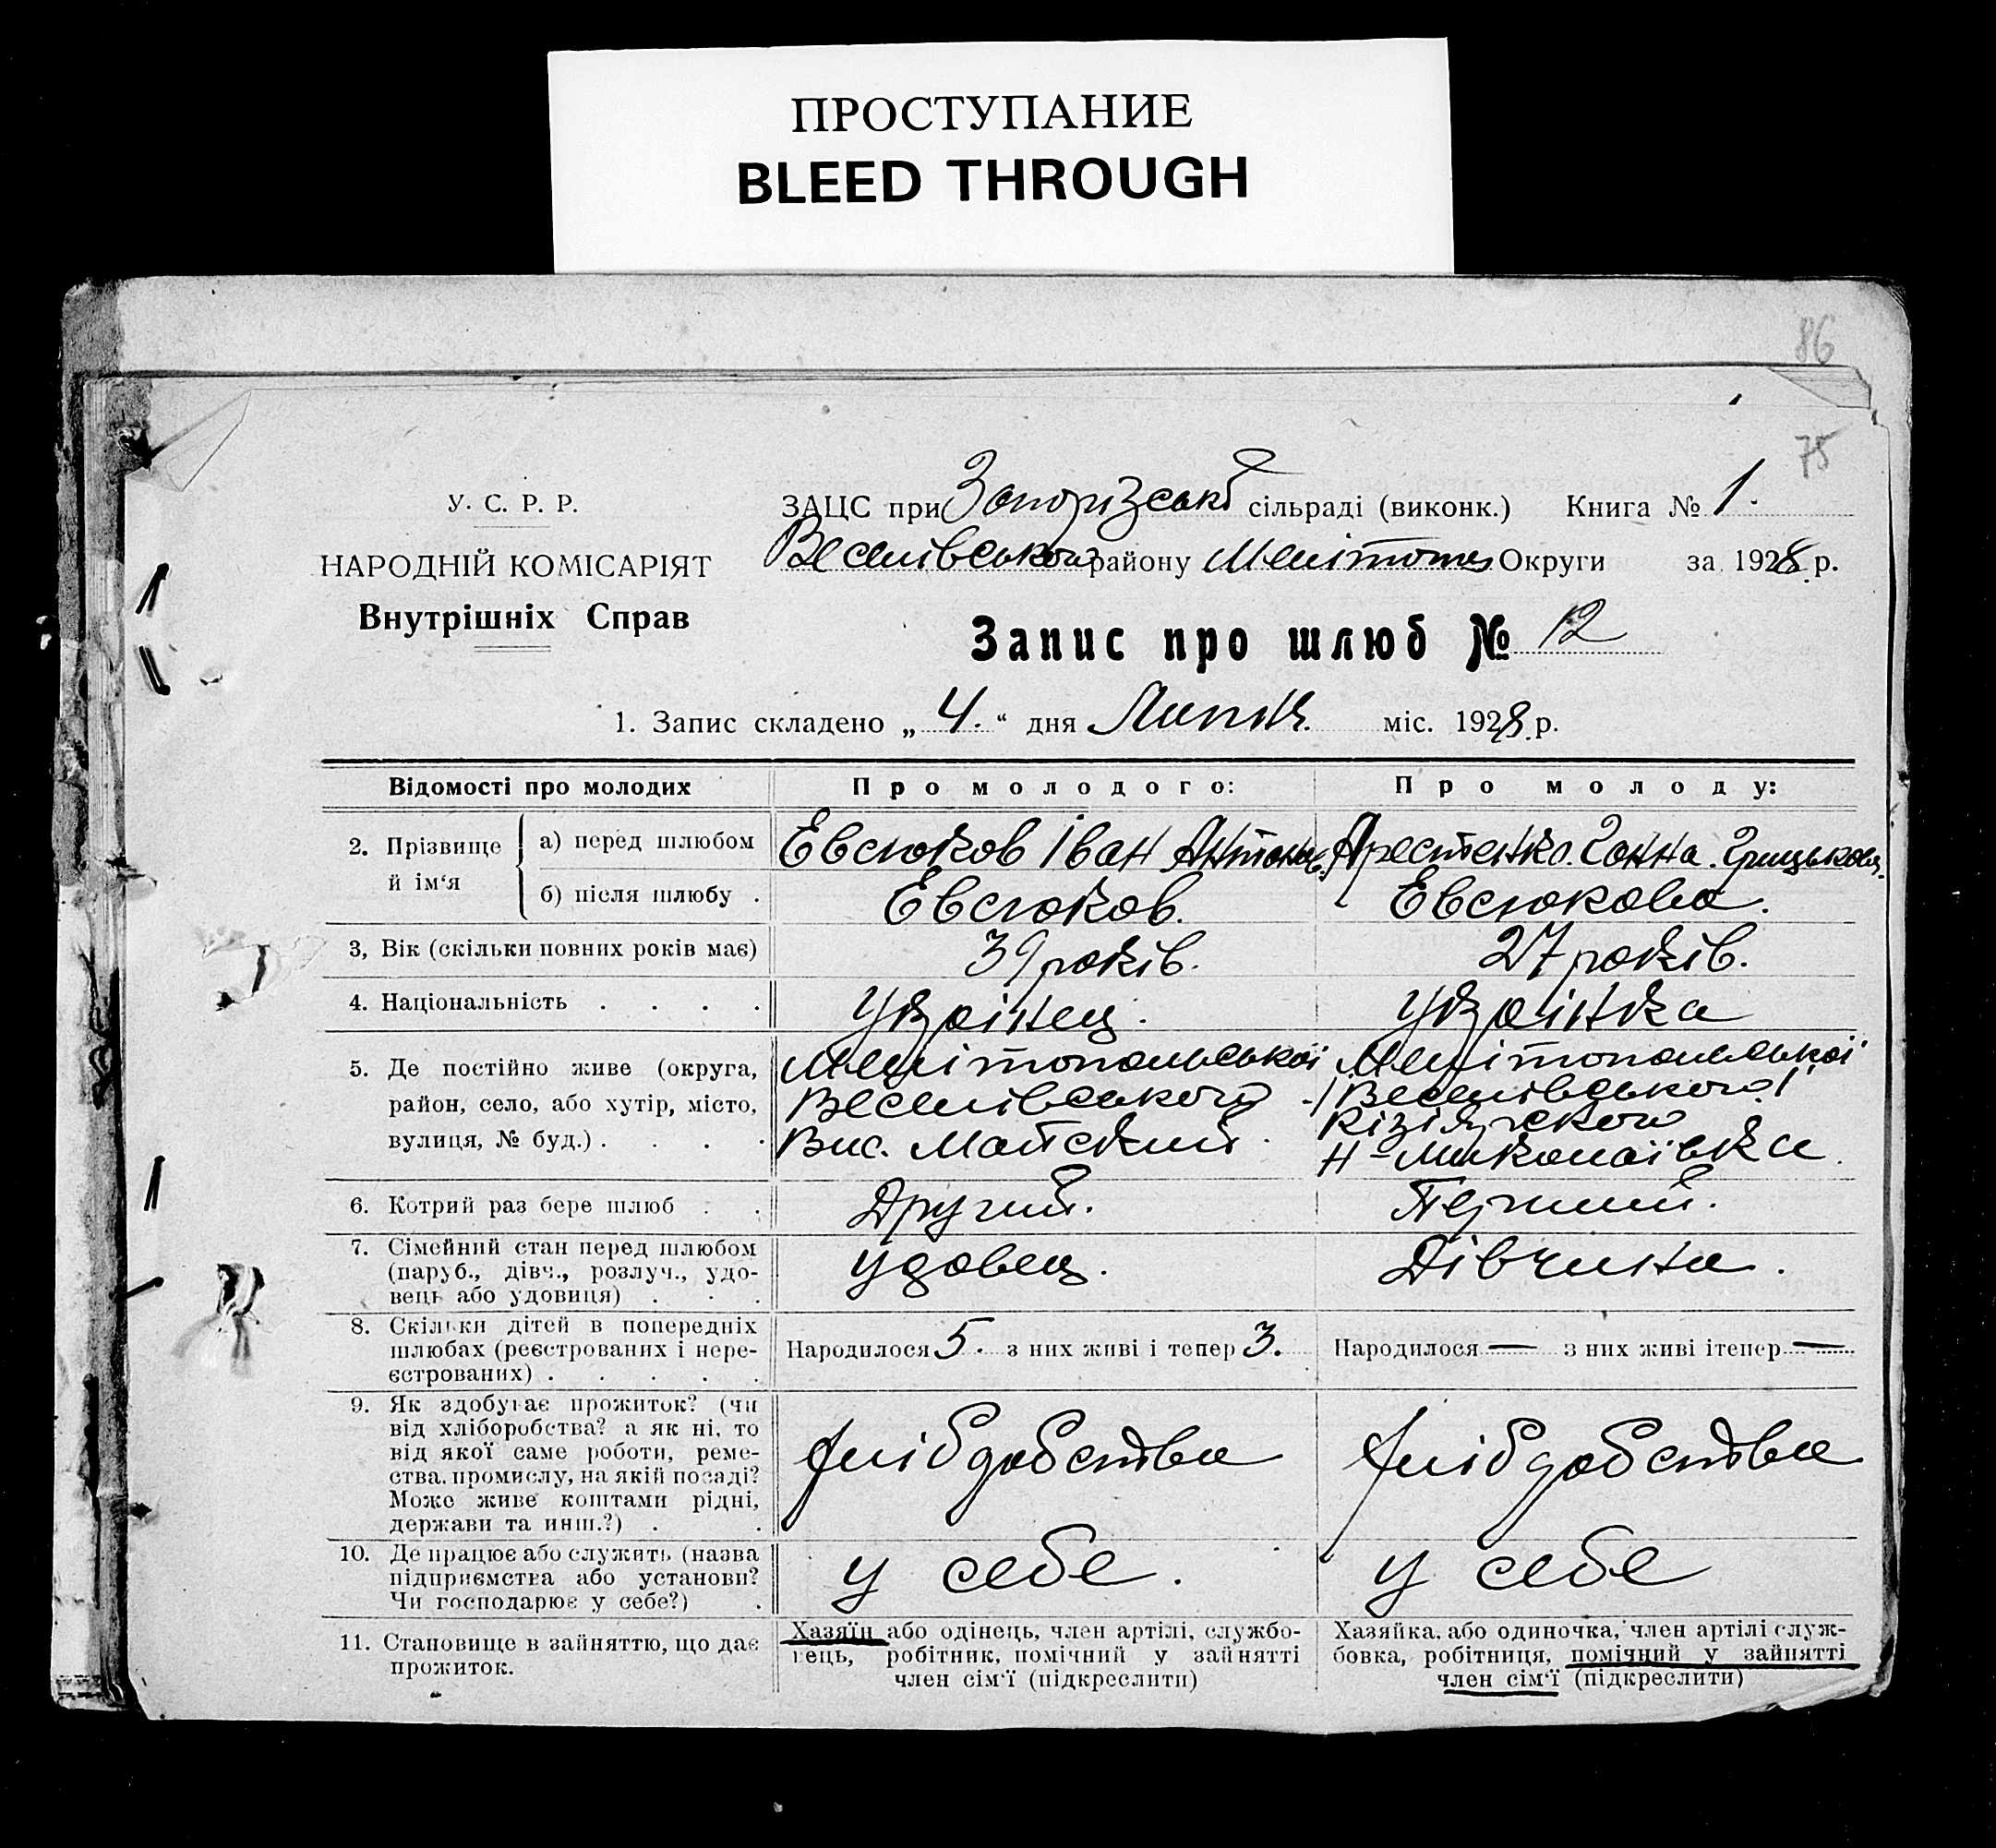 ПРОСТУПАНИЕ
BLEED THROUGH
86
75
У. С. Р. Р.
НАРОДНІЙ КОМІСАРІЯТ
Внутрішніх Справ
ЗАЦС при Запорізські сільраді (виконк.) Книга № 1.
Веселівського району Мелітоп Округи за 1928 р.
Запис про шлюб № 12
1. Запис складено „ 4. “ дня Липня міс. 1928 р.
Відомості про молодих
Про молодого:
Про молоду:
2. Прізвище й ім‘я
а) перед шлюбом
Евсюков Іван Антонов.
Арестенко. Ганна. Грицькова.
б) після шлюбу .
Евсюков.
Евсюкова.
3, Вік (скільки повних років має)
39 років.
27 років.
4. Національність . . . .
Украінец.
Украінка
5. Де постійно живе (округа,
район, село, або хутір, місто,
вулиця, № буд.) . . . .
Мелітопольської
Веселівського
Вис. Майский.
Мелітопольської
Веселівського
Н-Миколаївка.
6. Котрий раз бере шлюб . .
Другий.
Перший.
7. Сімейний стан перед шлюбом
(паруб., дівч., розлуч., удо-
вець або удовиця) . . .
Удовец.
Дівчина.
8. Скільки дітей в попередніх
шлюбах (реєстрованих і нере-
єстрованих) . . . . .
Народилося 5. з них живі і тепер 3.
Народилося — з них живі ітепер —
9. Як здобуває прожиток? (чи
від хліборобства? а як ні, то
від якої саме роботи, реме-
ства, промислу, на якій посаді?
Може живе коштами рідні,
держави та инш.?) . .
Хлібдобства
Хлібдобства
10. Де працює або служить (назва
підприємства або установи?
Чи господарює у себе?) .
у себе.
у себе
11. Становище в зайняттю, що дає
прожиток.
Хазяїн або одінець, член артілі, службо-
вець, робітник, помічний у зайнятті
член сім‘ї (підкреслити)
Хазяйка, або одиночка, член артілі служ-
бовка, робітниця, помічний у зайнятті
член сім‘ї (підкреслити)